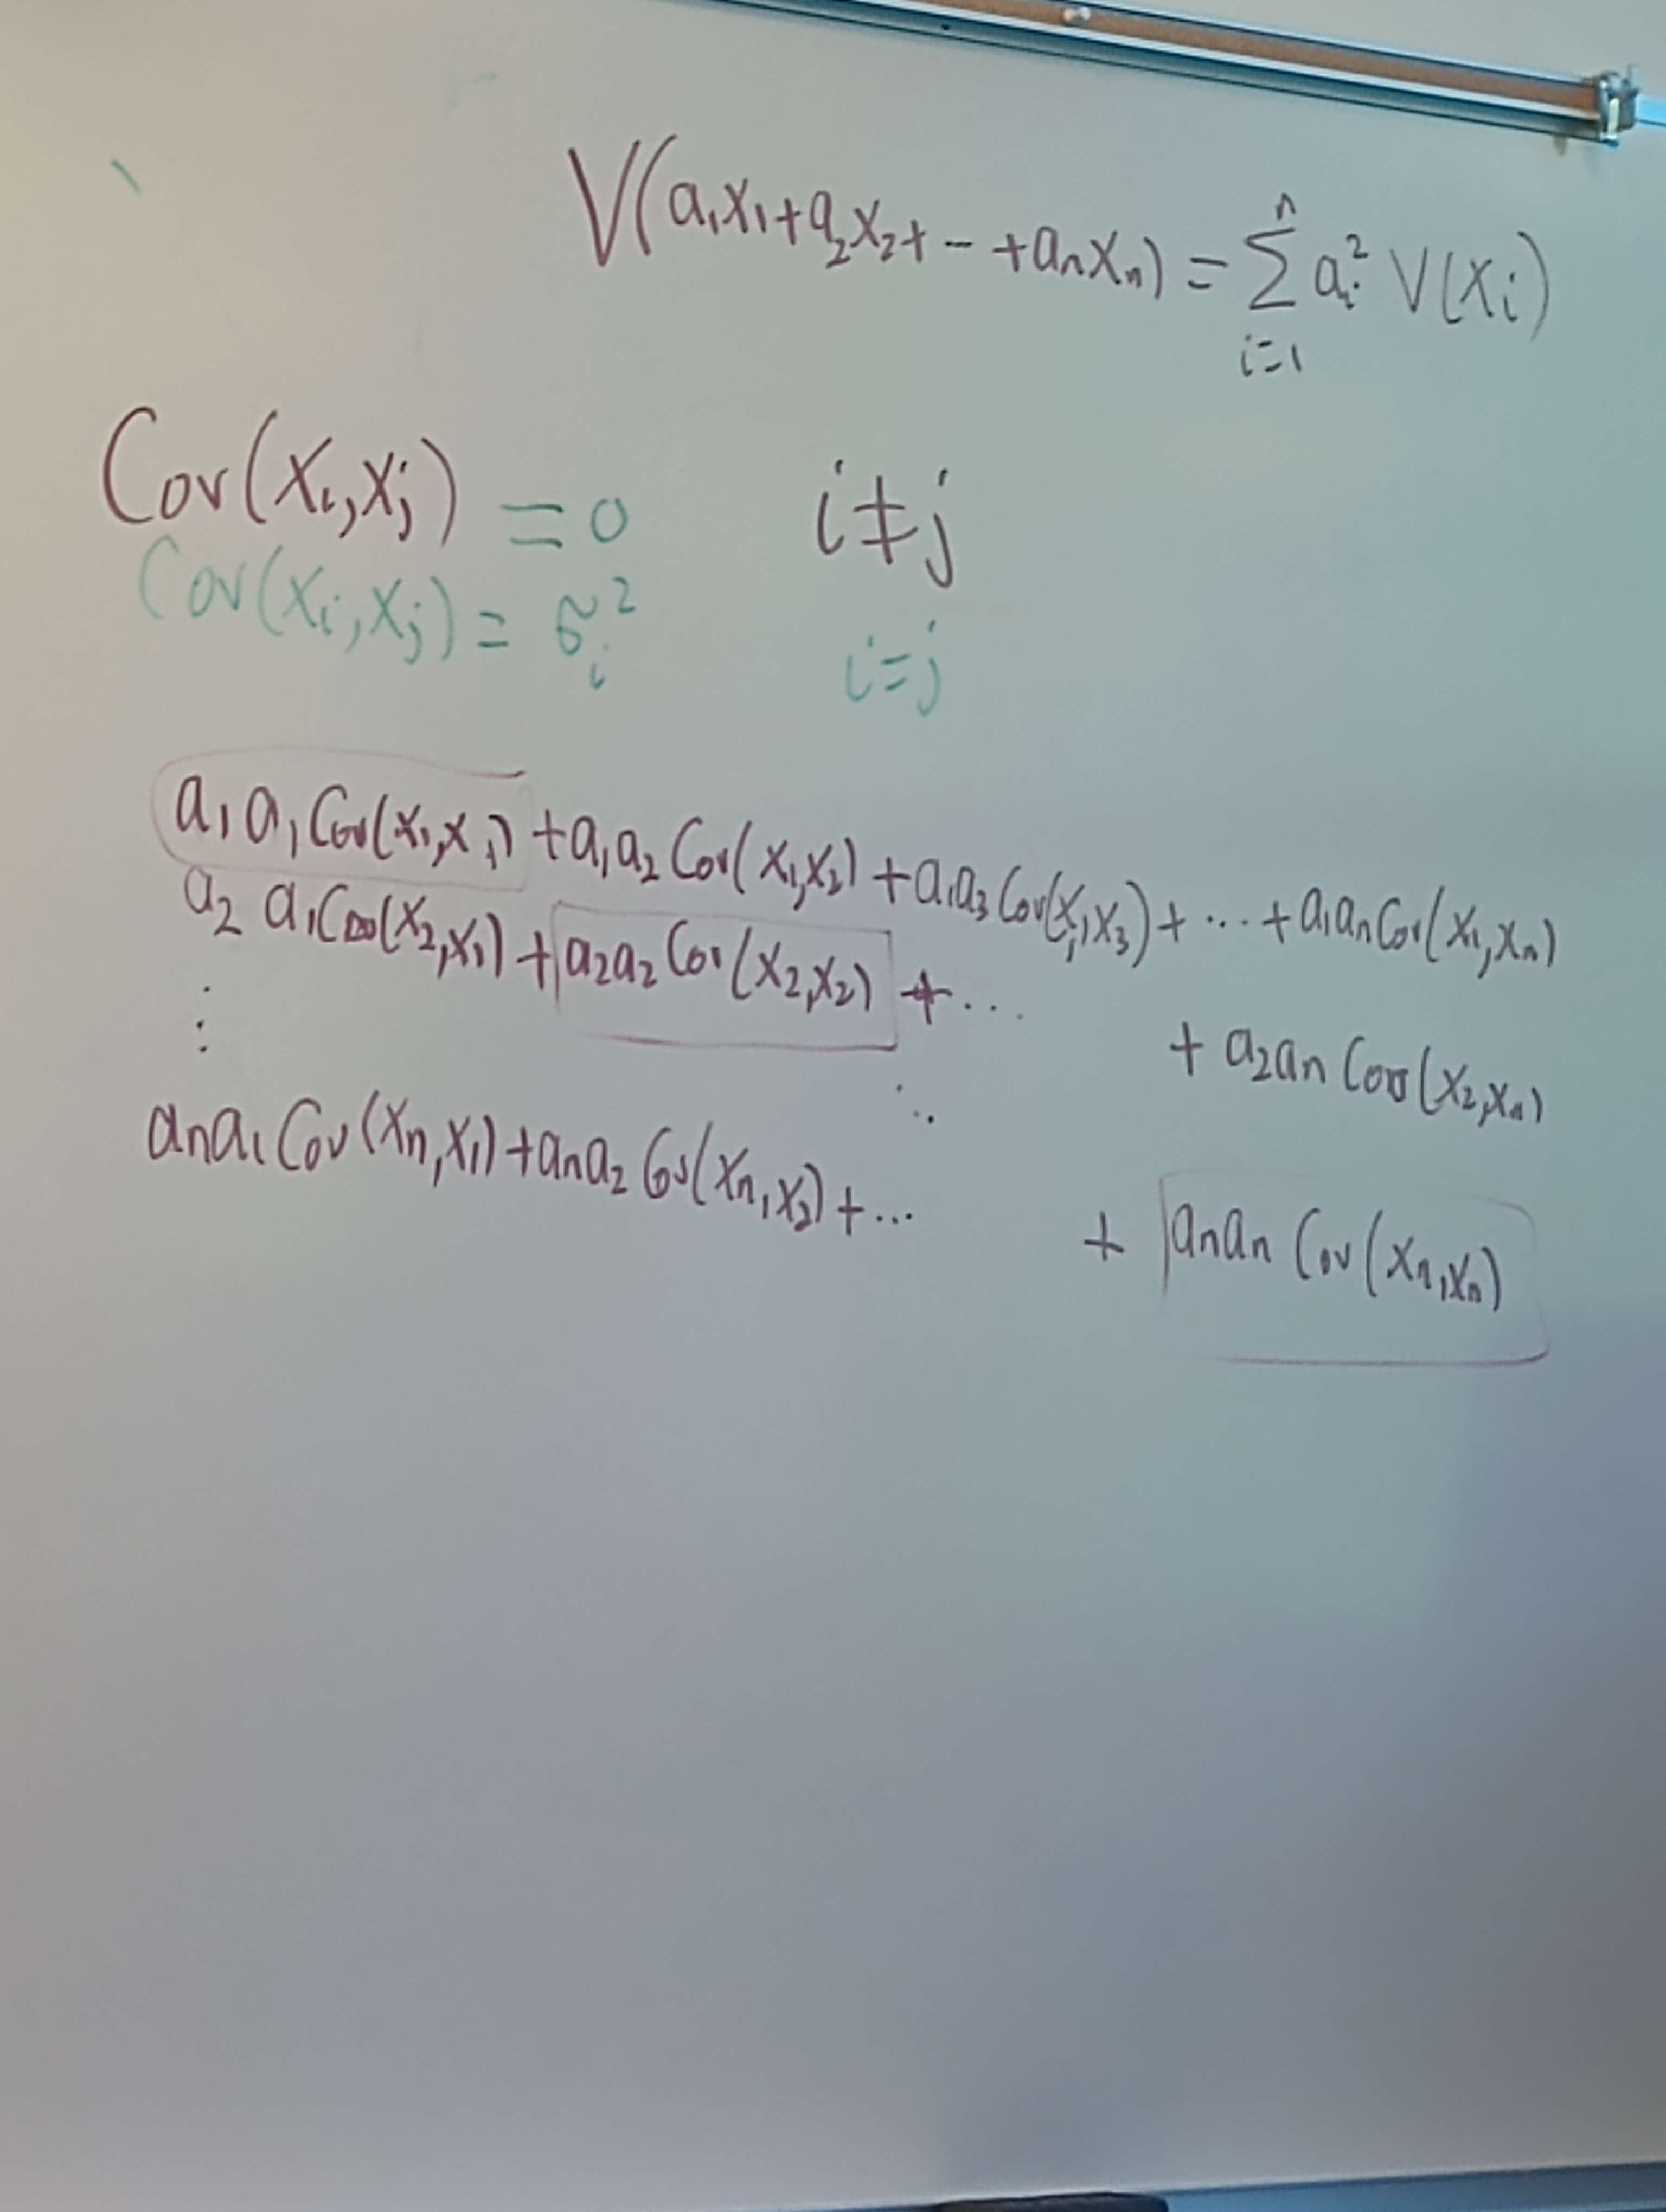 V(a₁x₁+a₂x₂+--+aₙxₙ) = ∑ⁿᵢ₌₁ aᵢ² V(xᵢ)
Cov(xᵢ,xⱼ) = 0 i≠j
Cov(xᵢ,xⱼ) = σᵢ² i=j
a₁a₁Cov(x₁,x₁) + a₁a₂ Cov(x₁,x₂) + a₁a₃ Cov(x₁,x₃) + ... + a₁aₙ Cov(x₁,xₙ)
a₂a₁Cov(x₂,x₁) + a₂a₂ Cov(x₂,x₂) + ... + a₂aₙ Cov(x₂,xₙ)
⋮ ⋱
aₙa₁ Cov(xₙ,x₁) + aₙa₂ Cov(xₙ,x₂) + ... + aₙaₙ Cov(xₙ,xₙ)